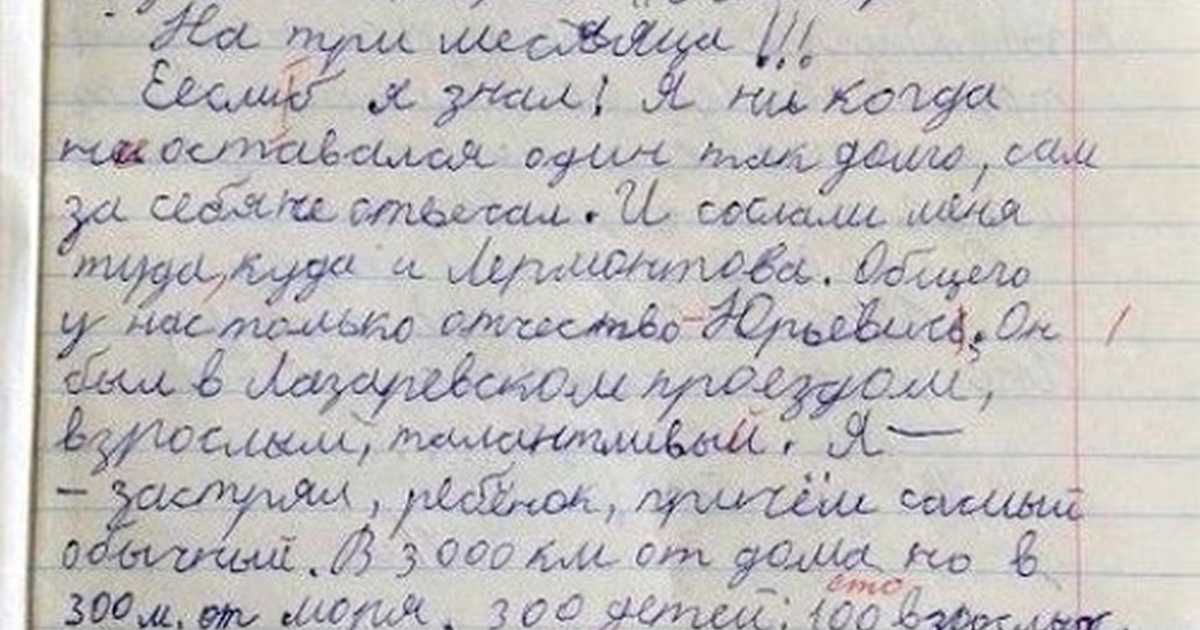 На три месяца!!!
Еесли б я знал! Я ни когда
не оставался один так долго, сам
за себя не отвечал. И сослали меня
туда, куда и Лермонтова. Общего
у нас только отчество - Юрьевич. Он
был в Лазаревском проездом,
взрослым, талантливый. Я —
- застрял, ребёнок, причём самый
обычный. В 3000 км от дома но в
сто
300 м. от моря. 300 детей; 100 взрослых.